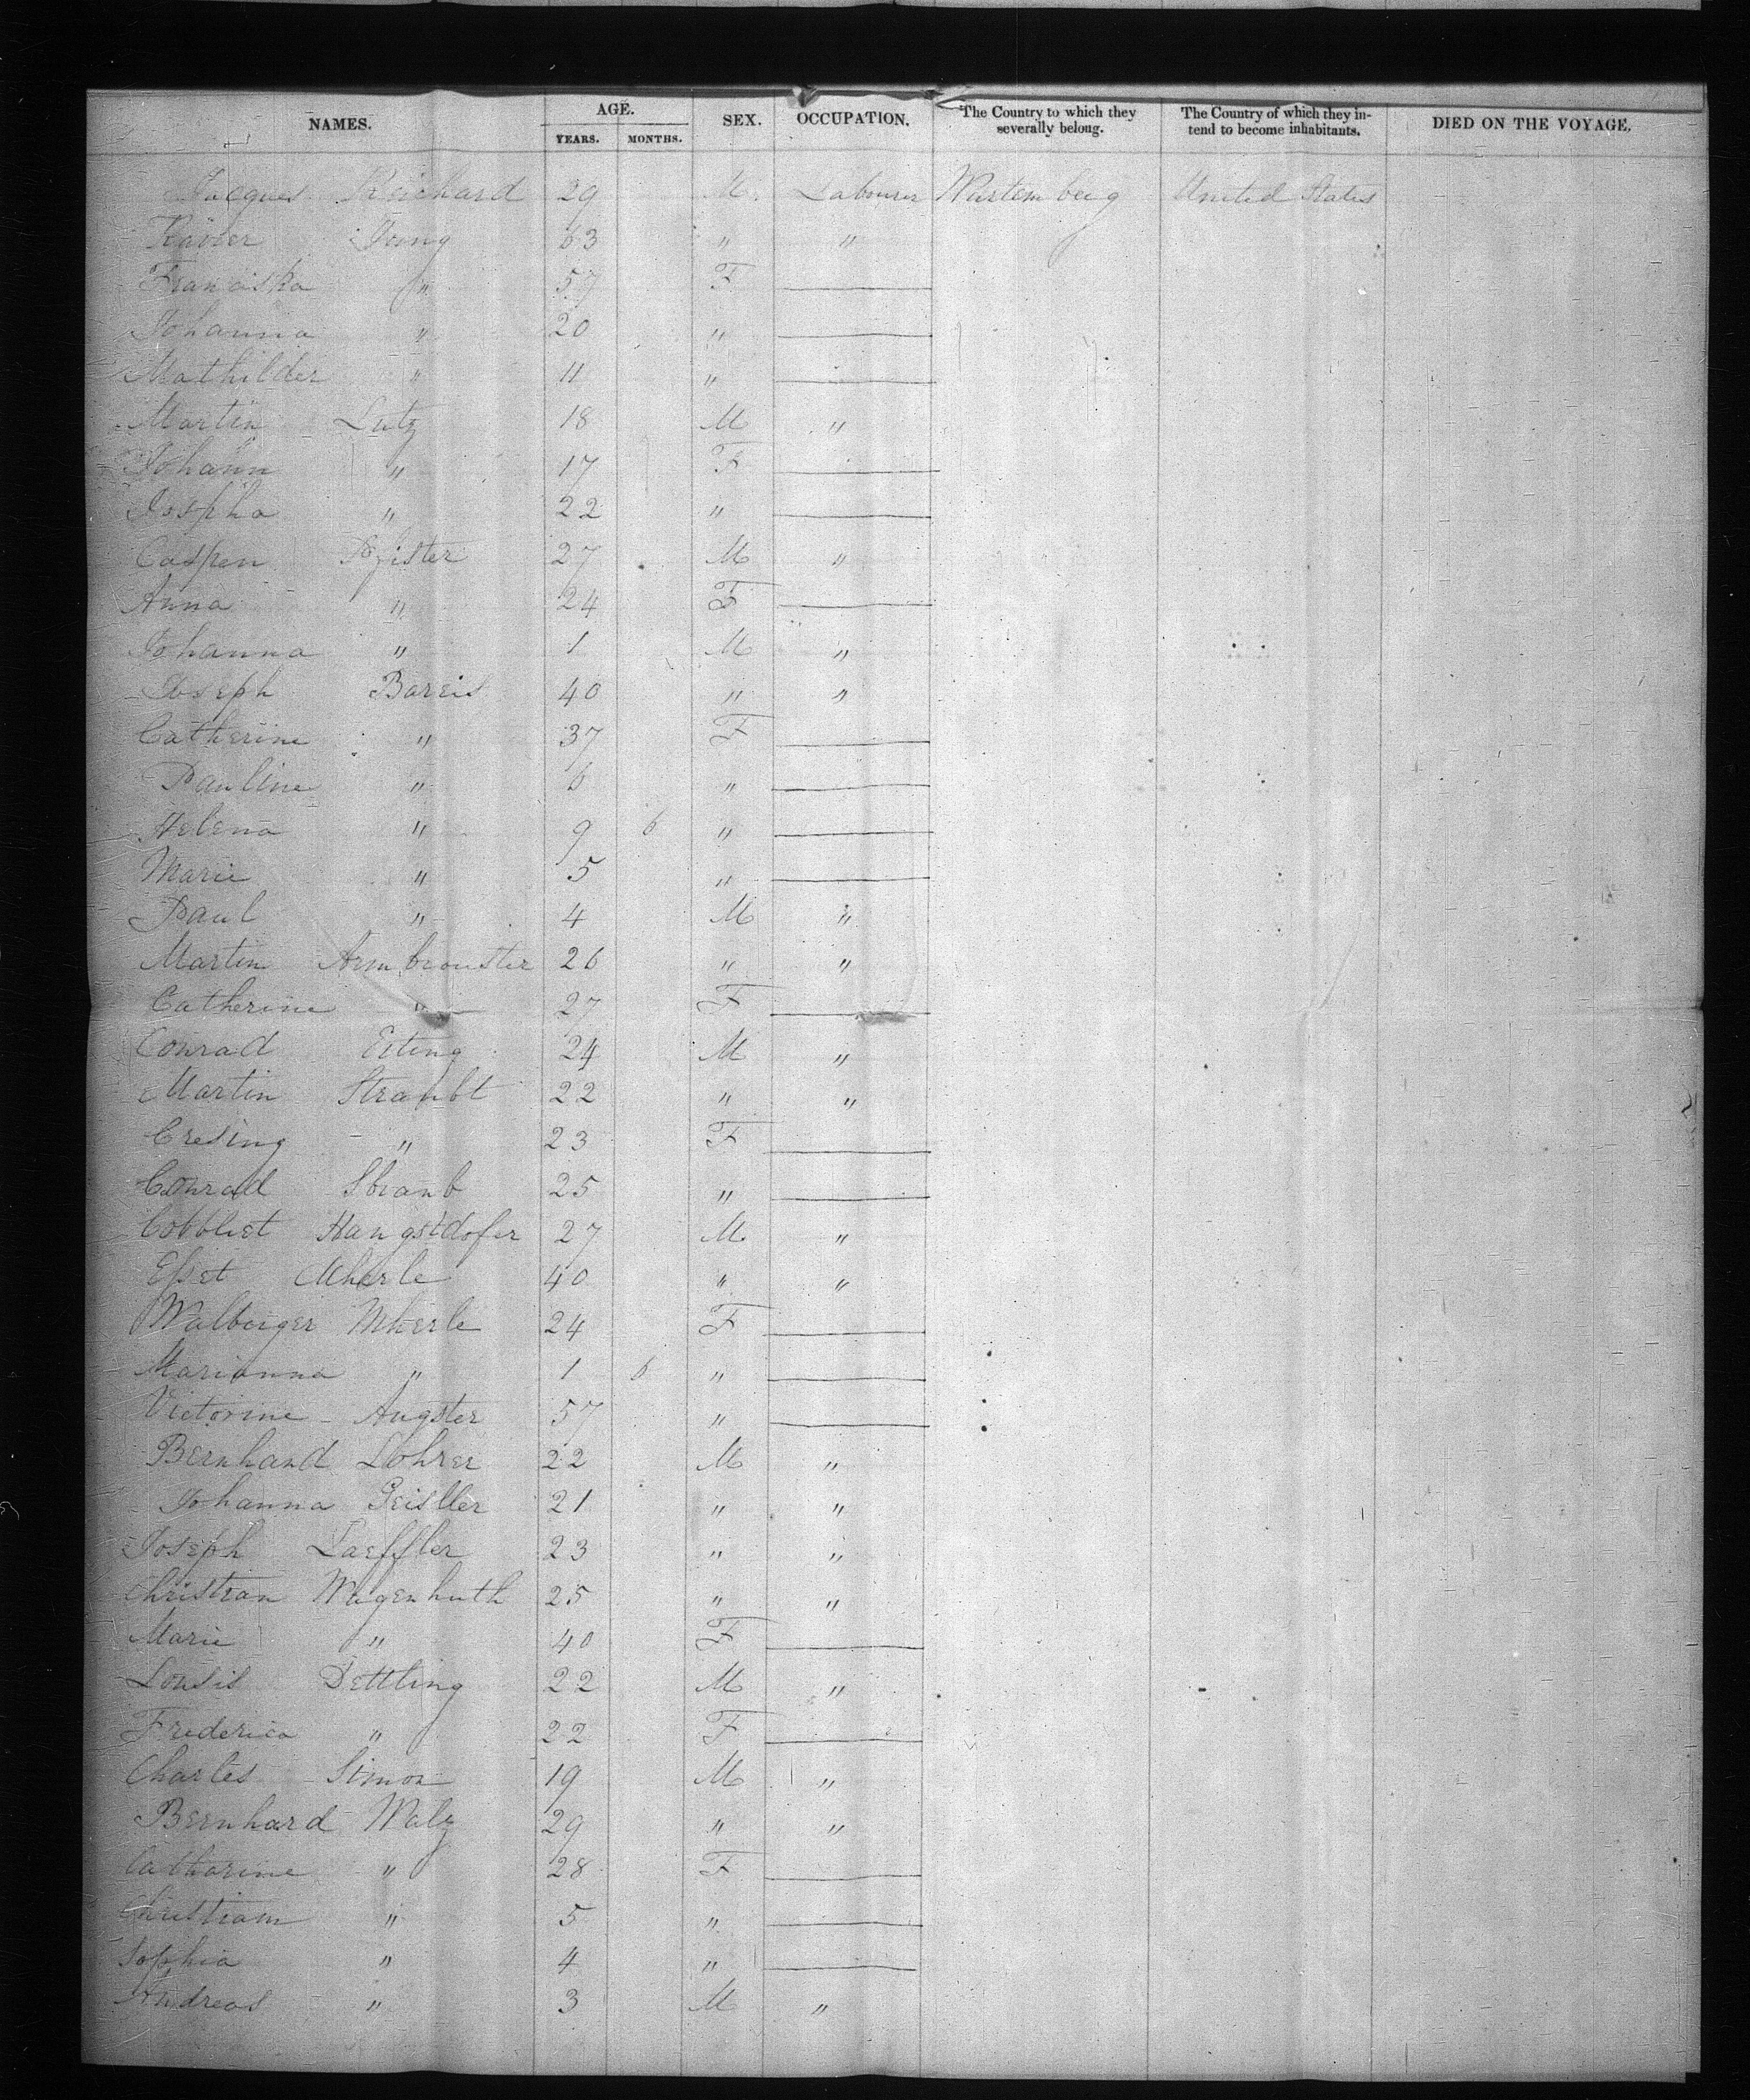 NAMES. AGE. YEARS. MONTHS. SEX. OCCUPATION. The Country to which they severally belong. The Country of which they intend to become inhabitants. DIED ON THE VOYAGE.
Jacques Reichard 29 M. Labourer Wurtemberg United States
Xavier Joung 63 " "
Franciska " 57 F
Johanna " 20 "
Mathilder " 11 "
Martin Lutz 18 M "
Johann " 17 F
Jospha " 22 "
Caspen Pfister 27 M "
Anna " 24 F
Johanna " 1 M "
Joseph Bareis 40 " "
Catherine " 37 F
Pauline " 6 "
Helena " 9 6 "
Marie " 5 "
Paul " 4 M "
Martin Armbrouster 26 " "
Catherine " 27 F
Conrad Eiting 24 M "
Martin Straubt 22 " "
Cresing " 23 F
Conrad Straub 25 "
Cobbliet Hangstdofer 27 M "
Mherle 40 " "
Walburger Mherle 24 F
Marianna " 1 6 "
Victorine Augster 57 "
Bernhand Lohrer 22 M "
Johanna Geisller 21 " "
Joseph Laeffler 23 " "
Christian Wagenhuth 25 " "
Marie " 40 F
Lousis Dettling 22 M "
Frederica " 22 F
Charles Simon 19 M "
Bernhard Walz 29 " "
Catharine " 28 F
Christiam " 5 "
Sophia " 4 "
Andreas " 3 M "